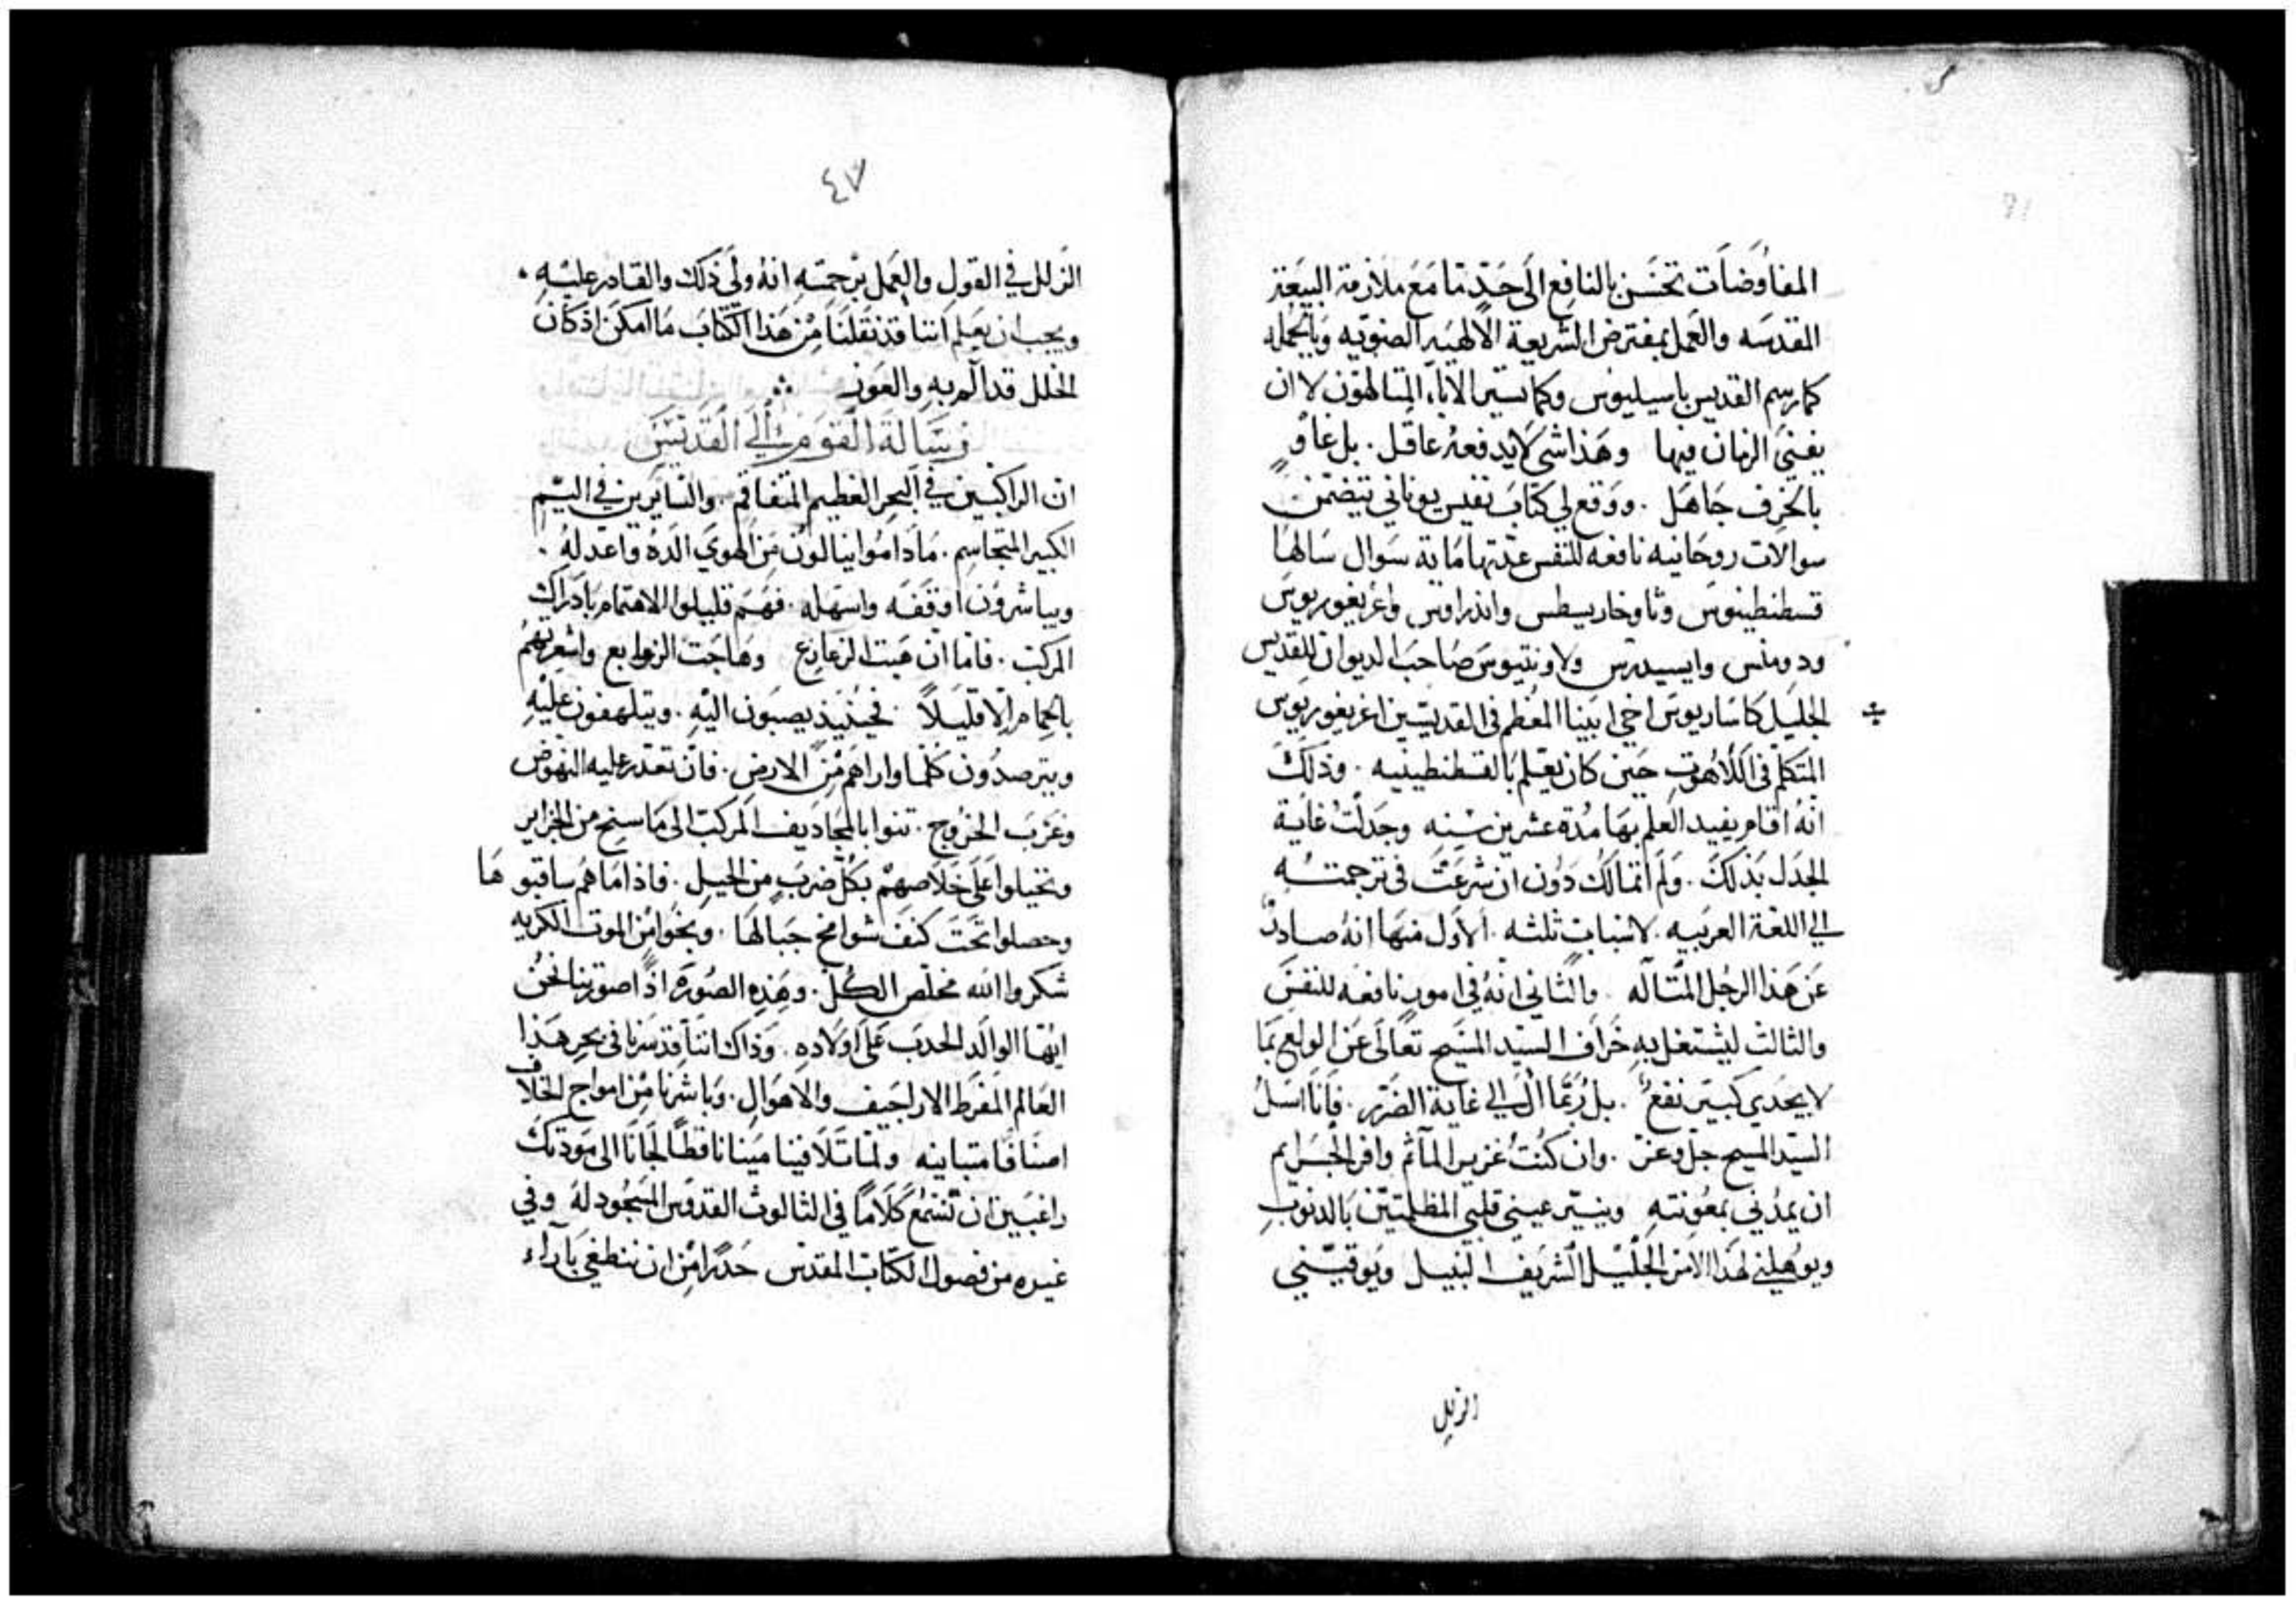 المفاوضات تحسن بالنافع الى حد ما مع ملازمة البيعة
المقدسه والعمل بمفترض الشريعة الالهيه الصنويه وبالجمله
كما رسم القديس باسيليوس وكما تسير الاباء المتالهون لا ان
يفني الزمان فيها وهذا شي لا يدفعه عاقل . بل غاوٍ
بالخرف جاهل . ووقع لي كتاب نفيس يوناني يتضمن
سوالات روحانيه نافعه للنفس عدتها ماية سوال سالها
قسطنطينوس وثاوخاريسطس واندراوس واغريغوريوس
ودومنس وايسيدرس ولاونتيوس صاحب الديوان للقديس
الجليل كاساريوس اخي ابينا المعظم في القديسين اغريغوريوس
المتكلم في اللاهوت حين كان يعلم بالقسطنطينيه . وذلك
انه اقام يفيد العلم بها مدة عشرين سنه وجدلت غاية
الجدل بذلك . ولم اتمالك دون ان شرعت في ترجمته
الي اللغة العربيه . لاسباب ثلثه . الاول منها انه صادر
عن هذا الرجل المتاله . والثاني انه في امور نافعه للنفس
والثالث ليشتغل به خراف السيد المسيح تعالى عن الولع بما
لا يجدي كبير نفع . بل ربما ال الي غاية الضرر . فانا اسل
السيد المسيح جل وعز . وان كنت غزير المآثم وافر الجرايم
ان يمدني بمعونته وينير عيني قلبي المظلمتين بالدنوب
ويوهلني لهذا الامر الجليل الشريف النبيل ويوقيني
الزلل
٤٧
الزلل في القول والعمل برحمته انه ولي ذلك والقادر عليه .
ويجب ان يعلم اننا قد نقلنا من هذا الكتاب ما امكن اذ كان
الخلل قد الم به والعون
رسالة القوم الي القديس
ان الراكبين في البحر العظيم المتفاقم . والسايرين في اليم
الكبير المتجاسم . ما داموا ينالون من الهوي الده واعدله .
ويباشرون اوقفه واسهله . فهم قليلوا الاهتمام بادراك
المركب . فاما ان هبت الزعازع وهاجت الزوابع واشعرتهم
بالحمام الا قليلاً . فحينيذ يصبون اليه . ويتلهفون عليه
ويترصدون كلما واراهم من الارض . فان تعذر عليه النهوض
وعزب الخروج . تنوا بالمجاديف المركب الى ما سنح من الجزاير
وتحيلوا على خلاصهم بكل ضرب من الحيل . فاذا ما هم ساقبوها
وحصلوا تحت كنف شوامخ جبالها . ونجوا من الموت الكريه
شكروا الله مخلص الكل . وهذه الصورة اذًا صورتنا نحن
ايها الوالد الحدب على اولاده . وذاك اننا قد سرنا في بحر هذا
العالم المفرط الاراجيف والاهوال . وباشرنا من امواج الخلاف
اصنافًا متباينه ولما تلافينا مينانا قط الجانا الى مودتك
راغبين ان نسمع كلامًا في الثالوث القدوس المسجود له وفي
غيره من فصول الكتاب المقدس حدرا من ان ننطغي بآراء